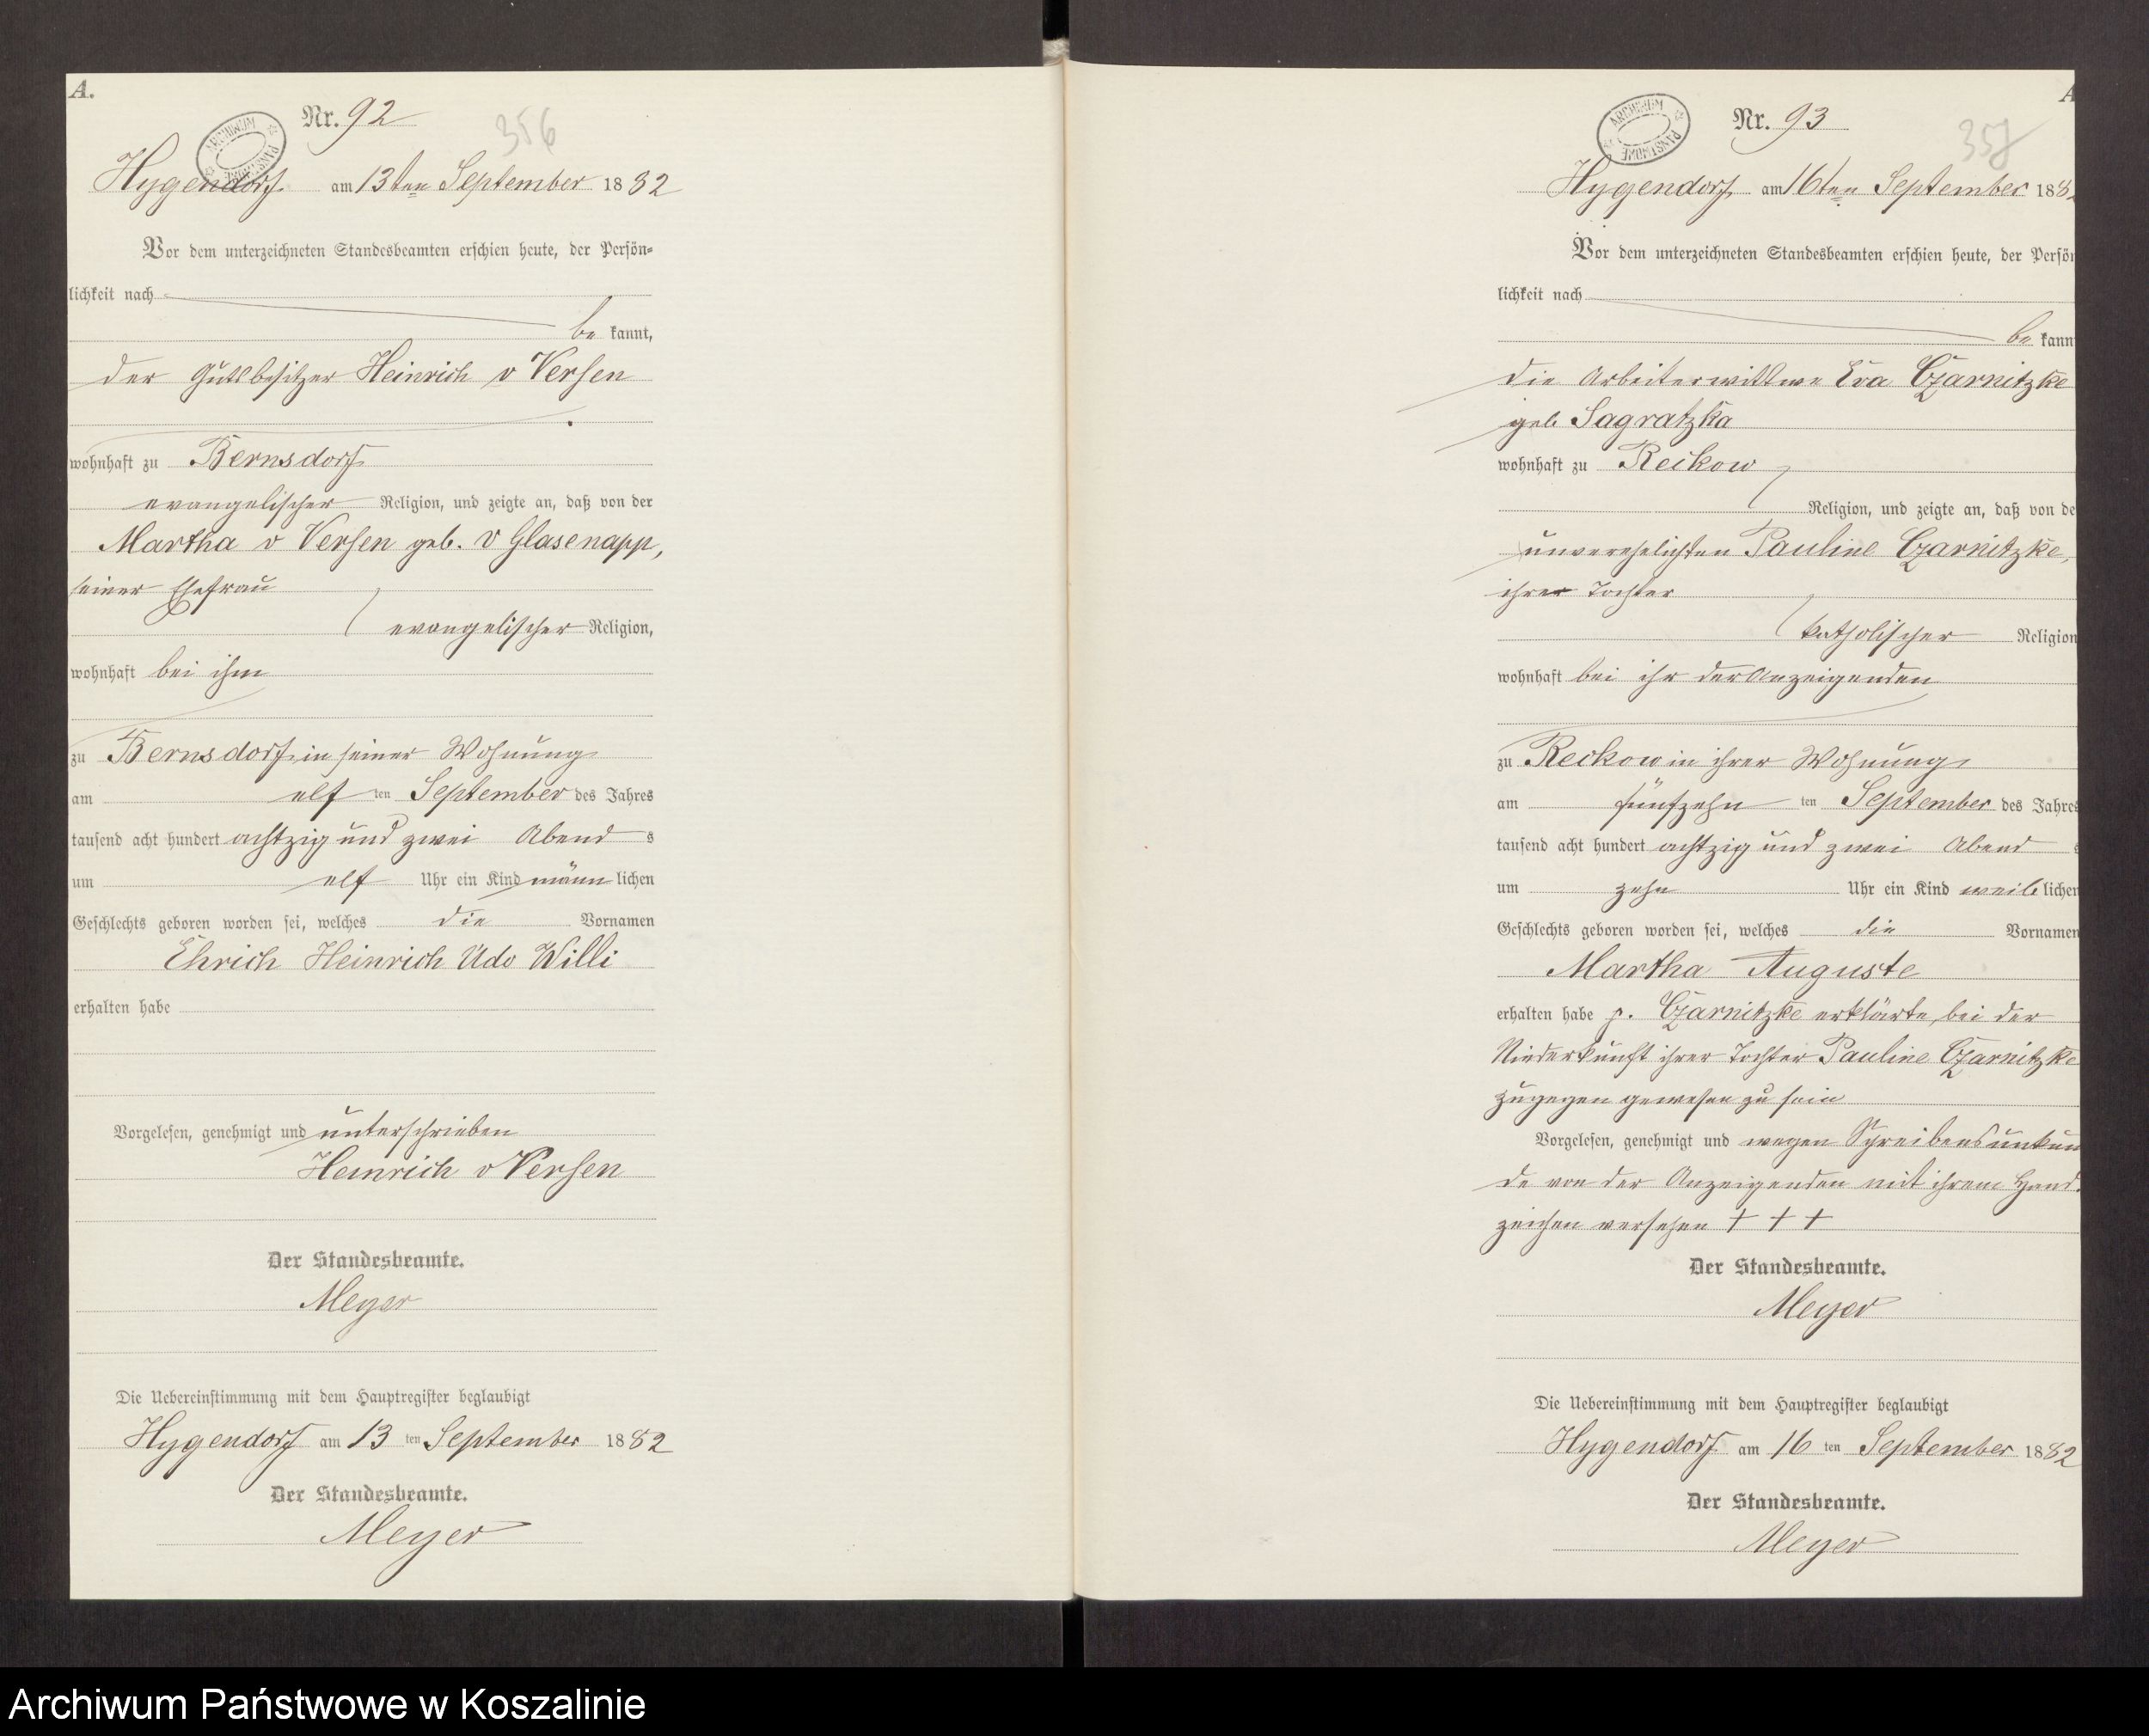 A.
Nr. 92
356
ARCHIWUM PAŃSTWOWE
Hygendorf am 13ten September 1882
Vor dem unterzeichneten Standesbeamten erschien heute, der Persön-
lichkeit nach
be kannt,
der Gutsbesitzer Heinrich v Versen
wohnhaft zu Bernsdorf
evangelischer Religion, und zeigte an, daß von der
Martha v Versen geb. v Glasenapp,
seiner Ehefrau
evangelischer Religion,
wohnhaft bei ihm
zu Bernsdorf in seiner Wohnung
am elf ten September des Jahres
tausend acht hundert achtzig und zwei Abend s
um elf Uhr ein Kind männ lichen
Geschlechts geboren worden sei, welches die Vornamen
Ehrich Heinrich Udo Willi
erhalten habe
Vorgelesen, genehmigt und unterschrieben
Heinrich v Versen
Der Standesbeamte.
Meyer
Die Uebereinstimmung mit dem Hauptregister beglaubigt
Hygendorf am 13 ten September 1882
Der Standesbeamte.
Meyer
A
Nr. 93
357
ARCHIWUM PAŃSTWOWE
Hygendorf am 16ten September 1882
Vor dem unterzeichneten Standesbeamten erschien heute, der Persön
lichkeit nach
be kann
die Arbeiterwittwe Eva Czarnitzke
geb Sagratzka
wohnhaft zu Reckow
Religion, und zeigte an, daß von de
unverehelichten Pauline Czarnitzke,
ihrer Tochter
katholischer Religion
wohnhaft bei ihr der Anzeigenden
zu Reckow in ihrer Wohnung
am fünfzehn ten September des Jahres
tausend acht hundert achtzig und zwei Abend s
um zehn Uhr ein Kind weib lichen
Geschlechts geboren worden sei, welches die Vornamen
Martha Auguste
erhalten habe p. Czarnitzke erklärte, bei der
Niederkunft ihrer Tochter Pauline Czarnitzke
zugegen gewesen zu sein
Vorgelesen, genehmigt und wegen Schreibensunkun
de von der Anzeigenden mit ihrem Hand-
zeichen versehen + + +
Der Standesbeamte.
Meyer
Die Uebereinstimmung mit dem Hauptregister beglaubigt
Hygendorf am 16 ten September 1882
Der Standesbeamte.
Meyer
Archiwum Państwowe w Koszalinie